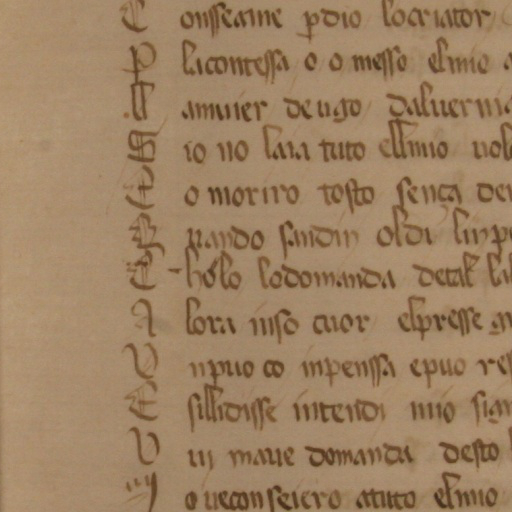 C onsseame p dio locriator
P lacontessa o o messo elmio a
ll amuier de ugo daluernia
S io no laia tuto ellmio uol
E o moriro tosto senca de
B rando sandin oldi linp
C holo lodomanda detal la
A lora inso cuor elpresse
V npuo co inpenssa epuo res
E sillidisse intendi mio sig
V ui maue domanda desto
M o ueconseiero atuto elmio